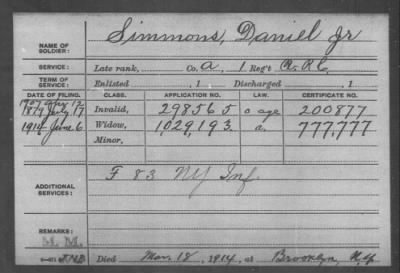 NAME OF SOLDIER: Simmons, Daniel Jr
SERVICE: Late rank, Co. A, 1 Reg't
TERM OF SERVICE: Enlisted , 1 Discharged , 1
DATE OF FILING. CLASS. APPLICATION NO. LAW. CERTIFICATE NO.
1907 12
1879 July 17 Invalid, 298565 age 200877
1914 June 6. Widow, 1,029,193. a. 777,777
Minor,
ADDITIONAL SERVICES: F 83 NY Inf.
REMARKS: M. M.
Died Mar. 18, 1914, at Brooklyn, N.Y.